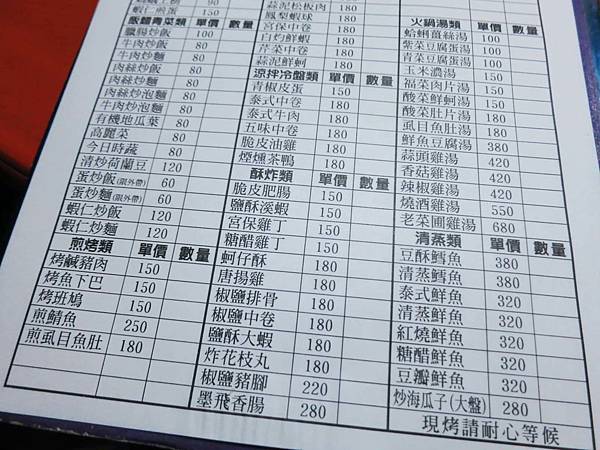 90
蝦仁煎蛋 90
飯麵青菜類 單價 數量
臘腸炒飯 100
牛肉炒飯 80
牛肉炒麵 80
肉絲炒飯 80
肉絲炒麵 80
肉絲炒泡麵 80
牛肉炒泡麵 80
有機地瓜葉 80
高麗菜 80
今日時蔬 80
清炒荷蘭豆 120
蛋炒飯(限外帶) 60
蛋炒麵(限外帶) 60
蝦仁炒飯 120
蝦仁炒麵 120
煎烤類 單價 數量
烤鹹豬肉 150
烤魚下巴 150
烤班鳩 150
煎鯖魚 250
煎虱目魚肚 180
蒜泥松板肉 180
鳳梨蝦球 180
宮保中卷 180
白灼鮮蝦 180
芹菜中卷 180
蒜泥鮮蚵 180
涼拌冷盤類 單價 數量
青椒皮蛋 150
泰式中卷 150
泰式牛肉 150
五味中卷 180
脆皮油雞 180
煙燻茶鴨 180
酥炸類 單價 數量
脆皮肥腸 150
鹽酥溪蝦 150
宮保雞丁 150
糖醋雞丁 150
蚵仔酥 180
唐揚雞 180
椒鹽排骨 180
椒鹽中卷 180
鹽酥大蝦 180
炸花枝丸 180
椒鹽豬腳 220
墨飛香腸 280
火鍋湯類 單價 數量
蛤蜊薑絲湯 100
紫菜豆腐蛋湯 100
青菜豆腐蛋湯 100
玉米濃湯 150
福菜肉片湯 150
酸菜鮮蚵湯 150
酸菜肚片湯 150
虱目魚肚湯 180
鮮魚豆腐湯 380
蒜頭雞湯 420
香菇雞湯 420
辣椒雞湯 420
燒酒雞湯 550
老菜圃雞湯 680
清蒸類 單價 數量
豆酥鱈魚 380
清蒸鱈魚 380
泰式鮮魚 320
清蒸鮮魚 320
紅燒鮮魚 320
糖醋鮮魚 320
豆瓣鮮魚 320
炒海瓜子(大盤) 280
現烤請耐心等候